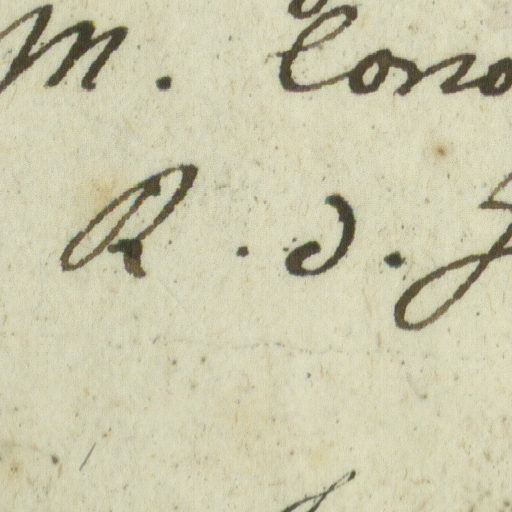 M. Cono
R. d.